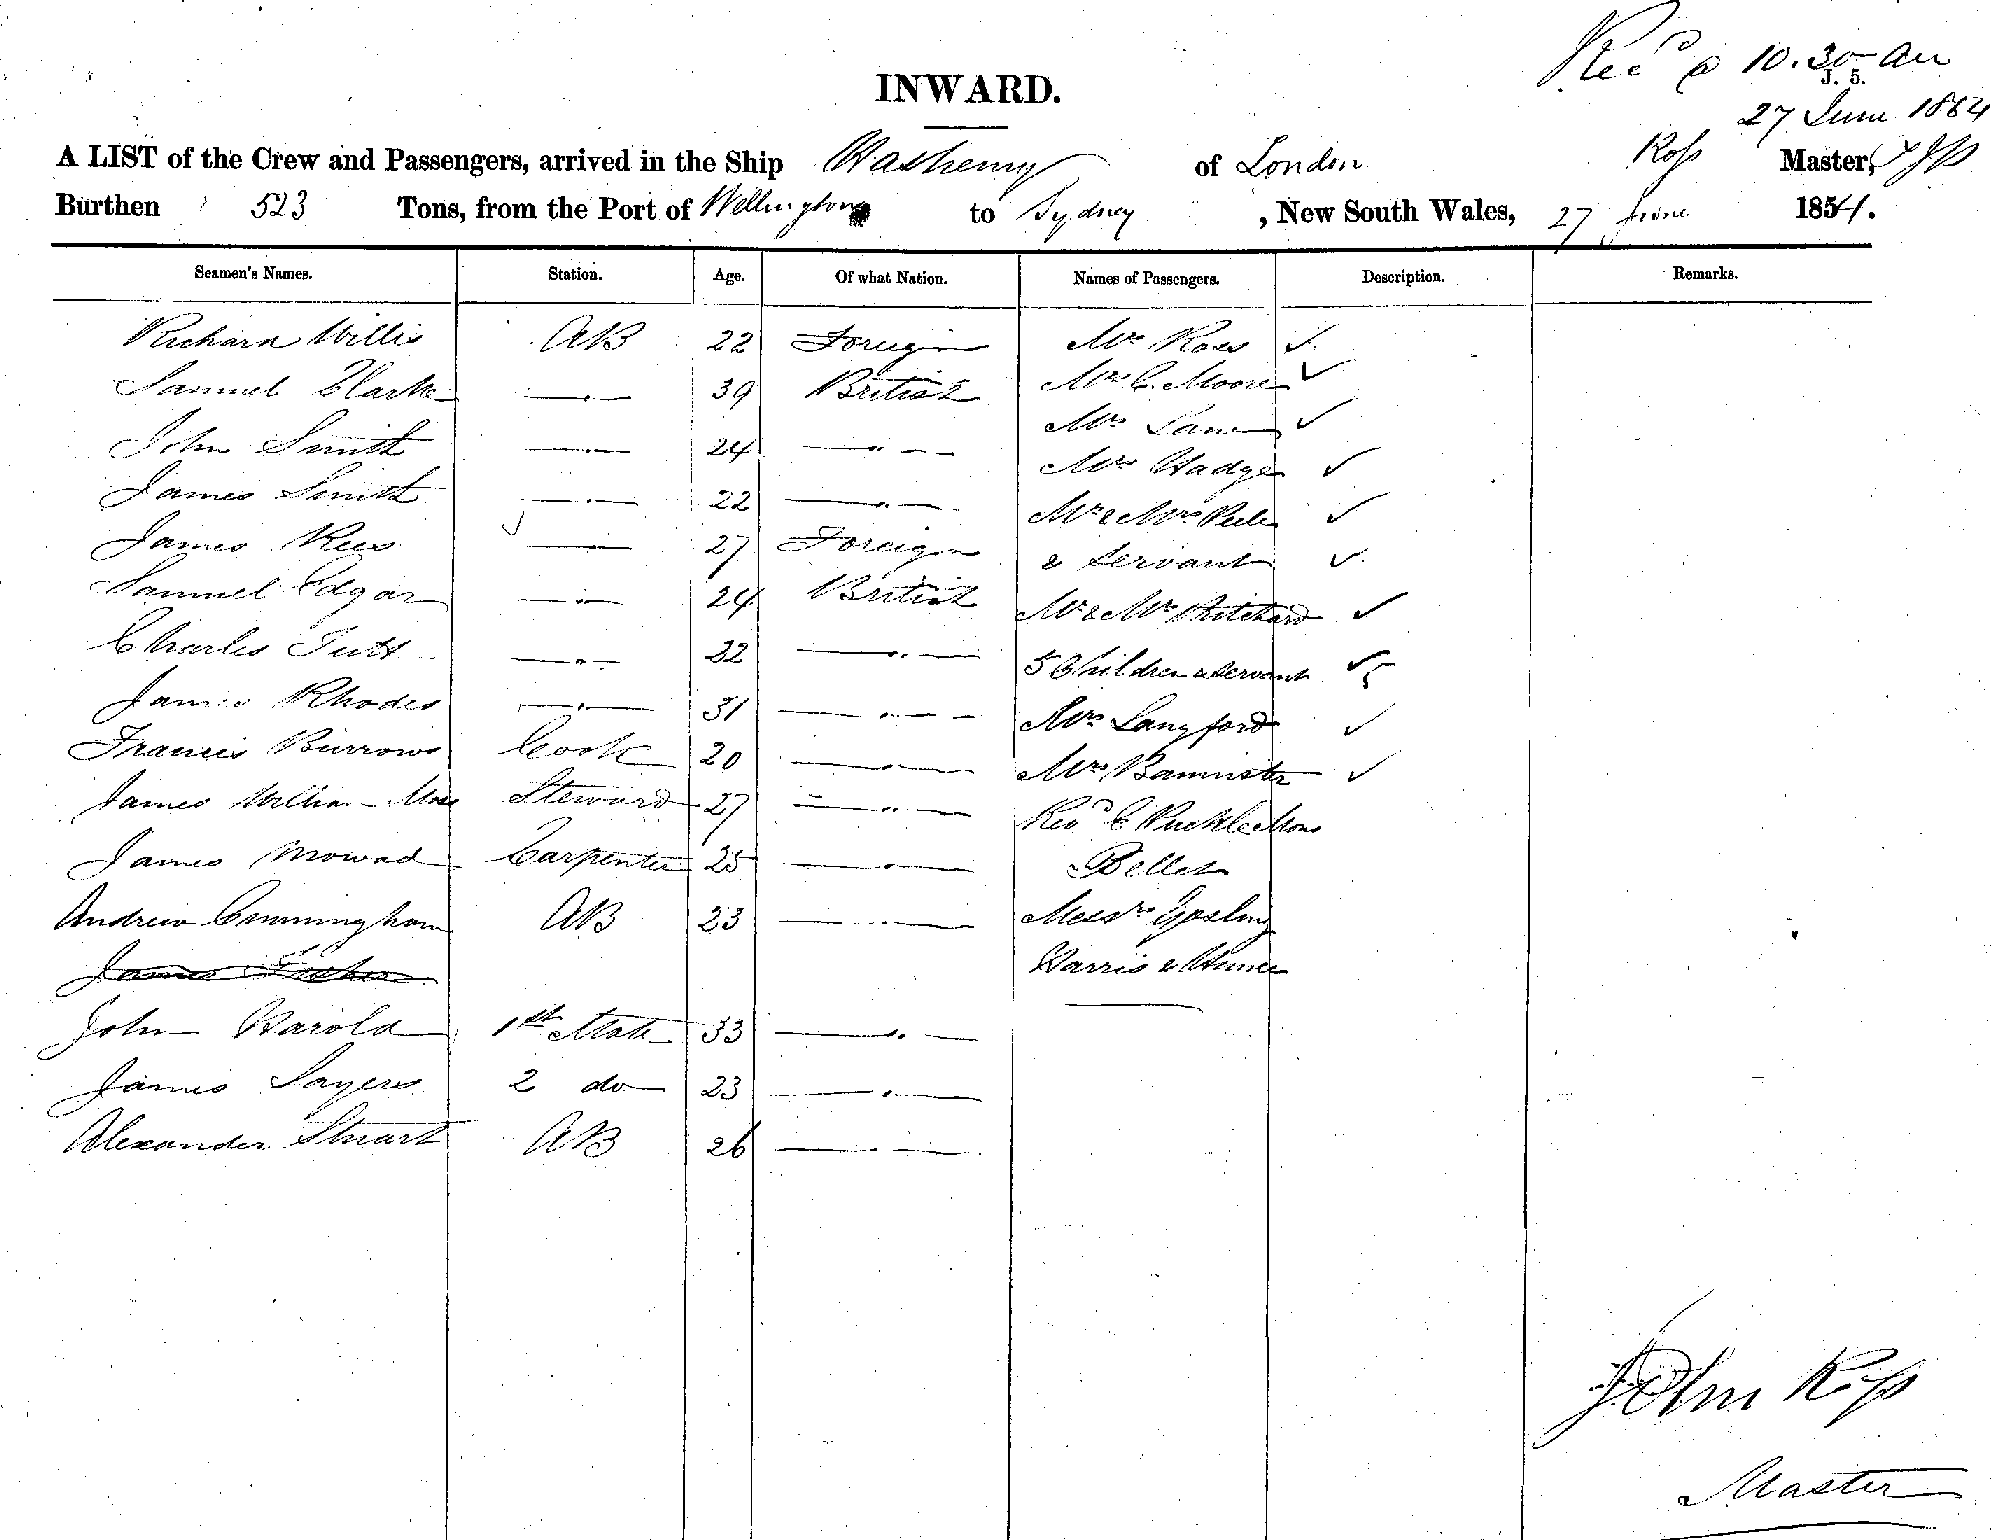 Rec'd @ 10.30 am
J. 5.
27 June 1864
INWARD.
A LIST of the Crew and Passengers, arrived in the Ship of London Ross Master,
Burthen 523 Tons, from the Port of Wellington to Sydney, New South Wales, 27 June 1854.
Seamen's Names. Station. Age. Of what Nation. Names of Passengers. Description. Remarks.
Richard Willis AB 22 Foreign Mrs Ross ✓
Samuel Clark —"— 39 British Mrs C. Moore ✓
John Smith —"— 24 —"— Mrs Lane ✓
James Smith —"— 22 —"— Mrs ✓
James Rees —"— 27 Foreign Mr & Mrs ✓
& Servant ✓
Samuel Edgar —"— 24 British Mr & Mrs Pritchard ✓
Charles Tutt —"— 22 —"— 5 Children & servant ✓ 5
James Rhodes —"— 31 —"— Mrs Langford ✓
Francis Burrows Cook 20 —"— Mrs Bannister ✓
James William Moss Steward 27 —"— Revd C Mons
James Mowad Carpenter 25 —"—
Andrew Cunningham AB 23 —"— Messrs Gosling
James Fisher Harris &
John Harold 1st Mate 33 —"—
James Sayers 2 do 23 —"—
Alexander Stuart AB 26 —"—
John Ross
Master